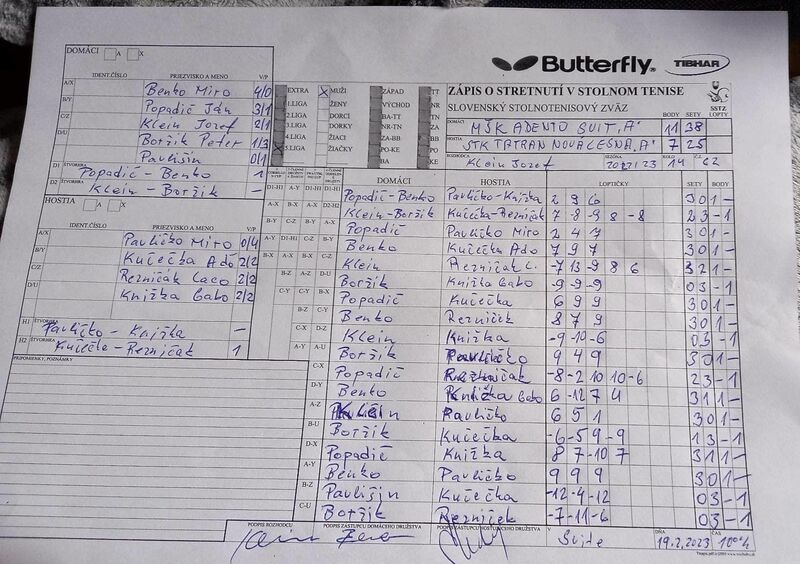 DOMÁCI A X
IDENT.ČÍSLO PRIEZVISKO A MENO V/P
A/X Benko Miro 4/0
B/Y Popadič Ján 3/1
C/Z Klein Jozef 2/1
D/U Boržik Peter 1/3
Pavlišin 0/1
D1 ŠTVORHRA Popadič - Benko 1
D2 ŠTVORHRA Klein - Boržik -
HOSTIA A X
IDENT.ČÍSLO PRIEZVISKO A MENO V/P
A/X Pavličko Miro 0/4
B/Y Kučečka Ado 2/2
C/Z Rezničak Laco 2/2
D/U Knižka Gabo 2/2
H1 ŠTVORHRA Pavličko - Knižka -
H2 ŠTVORHRA Kučečka - Rezničak 1
PRIPOMIENKY, POZNÁMKY
Butterfly TIBHAR
EXTRA X MUŽI ZÁPAD TT
1.LIGA ŽENY VÝCHOD NR
2.LIGA DORCI BA-TT TN
3.LIGA DORKY NR-TN ZA
4.LIGA ŽIACI ZA-BB BB
5.LIGA ŽIAČKY PO-KE PO
BA KE
ZÁPIS O STRETNUTÍ V STOLNOM TENISE
SLOVENSKÝ STOLNOTENISOVÝ ZVÄZ SSTZ
BODY SETY LOPTY
DOMÁCI MŠK ADENTO SVIT "A" 11 38
HOSTIA STK TATRAN NOVÁ LESNÁ "A" 7 25
ROZHODCA Klein Jozef SEZÓNA 2022/23 KOLO 14 Č. 62
DOMÁCI HOSTIA LOPTIČKY SETY BODY
Popadič-Benko Pavličko-Knižka 2 9 6 3 0 1 -
Klein-Boržik Kučečka-Rezničak 7 -8 -9 8 -8 2 3 - 1
Popadič Pavličko Miro 2 4 7 3 0 1 -
Benko Kučečka Ado 7 9 7 3 0 1 -
Klein Rezničák L. -7 13 -9 8 6 3 2 1 -
Boržik Knižka Gabo -9 -9 -9 0 3 - 1
Popadič Kučečka 6 9 9 3 0 1 -
Benko Rezničák 8 7 9 3 0 1 -
Klein Knižka -9 -10 -6 0 3 - 1
Boržik Pavličko 9 4 9 3 0 1 -
Popadič Rezničák -8 -2 10 10 -6 2 3 - 1
Benko Knižka Gabo 6 -12 7 4 3 1 1 -
Klein Pavličko 6 5 1 3 0 1 -
Boržik Kučečka -6 -5 9 -9 1 3 - 1
Popadič Knižka 8 7 -10 7 3 1 1 -
Benko Pavličko 9 9 9 3 0 1 -
Pavlišin Kučečka -12 -4 -12 0 3 - 1
Boržik Rezniček -7 -11 -6 0 3 - 1
PODPIS ROZHODCU PODPIS ZÁSTUPCU DOMÁCEHO DRUŽSTVA PODPIS ZÁSTUPCU HOSŤUJÚCEHO DRUŽSTVA V Svite DŇA 19.2.2023 ČAS 10°°h